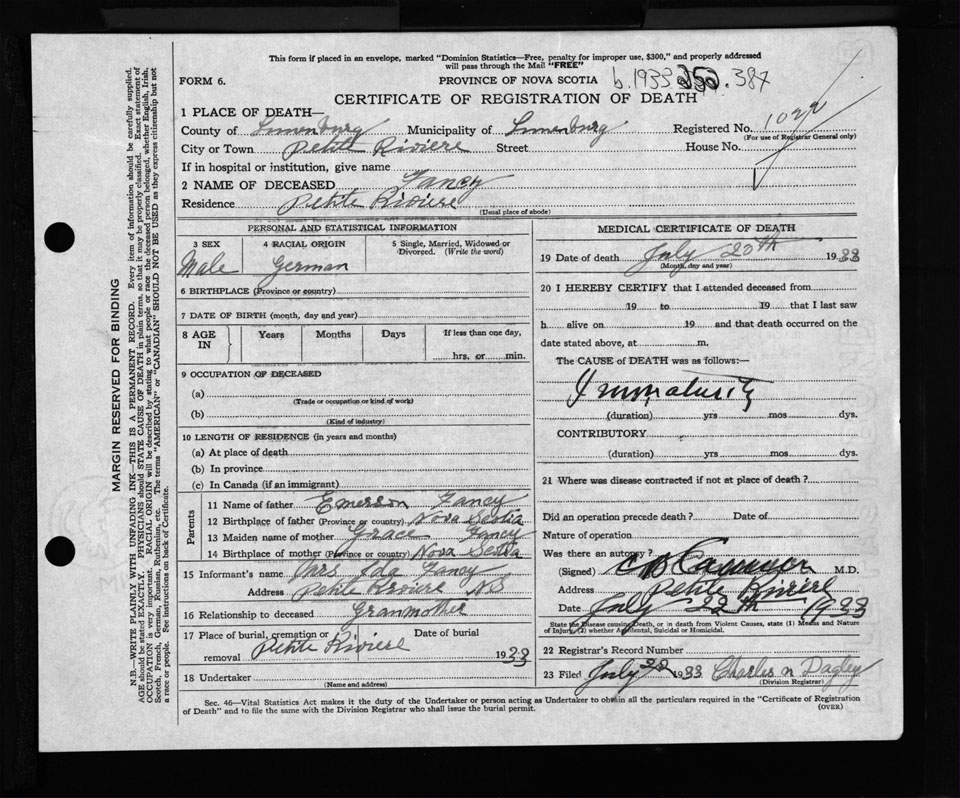 This form if placed in an envelope, marked "Dominion Statistics—Free, penalty for improper use, $300," and properly addressed
will pass through the Mail "FREE"
FORM 6.
PROVINCE OF NOVA SCOTIA
b.1933 387
CERTIFICATE OF REGISTRATION OF DEATH
MARGIN RESERVED FOR BINDING
N.B.—WRITE PLAINLY WITH UNFADING INK—THIS IS A PERMANENT RECORD. Every item of information should be carefully supplied.
AGE should be stated EXACTLY. PHYSICIANS should STATE CAUSE OF DEATH in plain terms, so that it may be properly classified. Exact statement of
OCCUPATION is very important. RACIAL ORIGIN will be described by stating to what people or race the deceased person belonged, whether English, Irish,
Scotch, French, German, Russian, Ruthenian, etc. The terms "AMERICAN" or "CANADIAN" SHOULD NOT BE USED as they express citizenship but not
a race or people. See instructions on back of Certificate.
1 PLACE OF DEATH—
County of Lunenburg Municipality of Lunenburg Registered No.
(For use of Registrar General only)
City or Town Petite Riviere Street House No.
If in hospital or institution, give name
2 NAME OF DECEASED Fancy
Residence Petite Riviere
(Usual place of abode)
PERSONAL AND STATISTICAL INFORMATION
3 SEX 4 RACIAL ORIGIN 5 Single, Married, Widowed or Divorced. (Write the word)
Male German
6 BIRTHPLACE (Province or country)
7 DATE OF BIRTH (month, day and year)
8 AGE IN Years Months Days If less than one day,
hrs. or min.
9 OCCUPATION OF DECEASED
(a)
(Trade or occupation or kind of work)
(b)
(Kind of industry)
10 LENGTH OF RESIDENCE (in years and months)
(a) At place of death
(b) In province
(c) In Canada (if an immigrant)
Parents
11 Name of father Emerson Fancy
12 Birthplace of father (Province or country) Nova Scotia
13 Maiden name of mother Grace Fancy
14 Birthplace of mother (Province or country) Nova Scotia
15 Informant's name Mrs Ida Fancy
Address Petite Riviere NS
16 Relationship to deceased Granmother
17 Place of burial, cremation or removal Petite Riviere Date of burial 1933
18 Undertaker
(Name and address)
MEDICAL CERTIFICATE OF DEATH
19 Date of death July 20th 1933
(Month, day and year)
20 I HEREBY CERTIFY that I attended deceased from
19 to 19 that I last saw
h alive on 19 and that death occurred on the
date stated above, at m.
The CAUSE of DEATH was as follows:—
Immaturity
(duration) yrs mos dys.
CONTRIBUTORY
(duration) yrs mos dys.
21 Where was disease contracted if not at place of death?
Did an operation precede death? Date of
Nature of operation
Was there an autopsy?
(Signed) M.D.
Address Petite Riviere
Date July 22th 1933
State the Disease causing Death, or in death from Violent Causes, state (1) Means and Nature
of Injury, (2) whether Accidental, Suicidal or Homicidal.
22 Registrar's Record Number
23 Filed July 1933 Charles N Dagley
(Division Registrar)
Sec. 46—Vital Statistics Act makes it the duty of the Undertaker or person acting as Undertaker to obtain all the particulars required in the "Certificate of Registration
of Death" and to file the same with the Division Registrar who shall issue the burial permit.
(OVER)